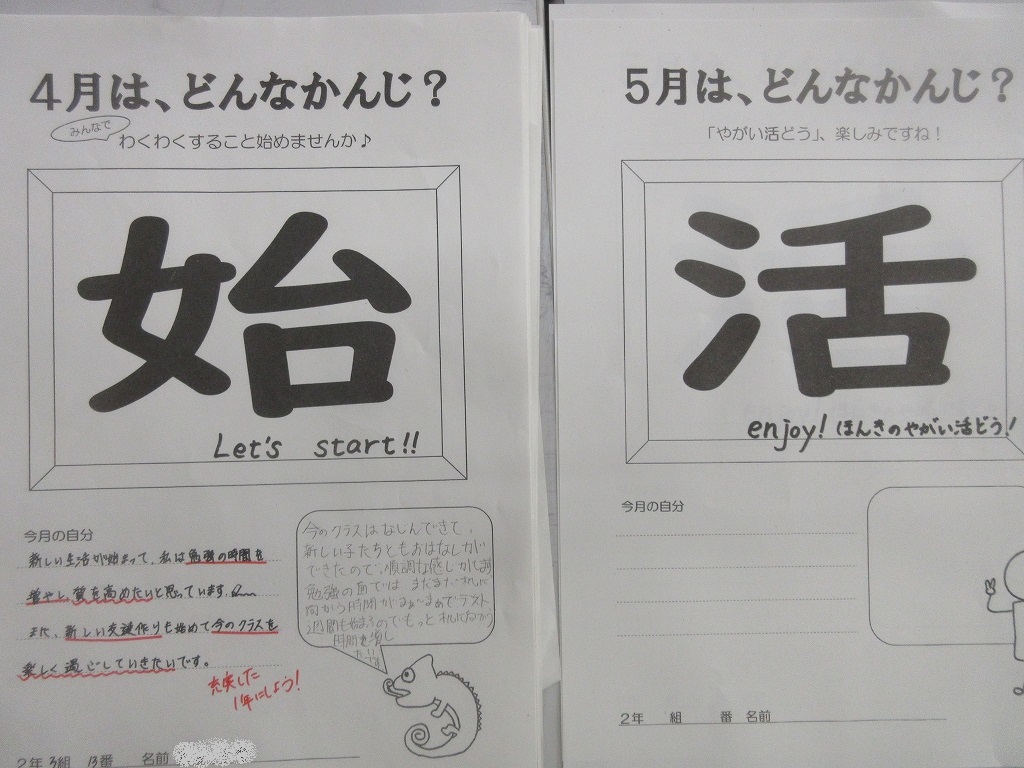 4月は、どんなかんじ？
みんなで
わくわくすること始めませんか♪
始
Let's start!!
今月の自分
新しい生活が始まって、私は勉強の時間を
増やし、質を高めたいと思っています。
また、新しい友達作りも始めて今のクラスを
楽しく過ごしていきたいです。
充実した
1年にしよう!
今のクラスはなじんできて、
新しい子たちともおはなしが
できたので、順調な感じがします
勉強の面では まだまだ
向かう時間が まぁまぁでテスト
週間も始まるのでもっと
時間を増し
たい
2年 3組 13番 名前
5月は、どんなかんじ？
「やがい活どう」、楽しみですね！
活
enjoy! ほんきのやがい活どう！
今月の自分
2年 組 番 名前